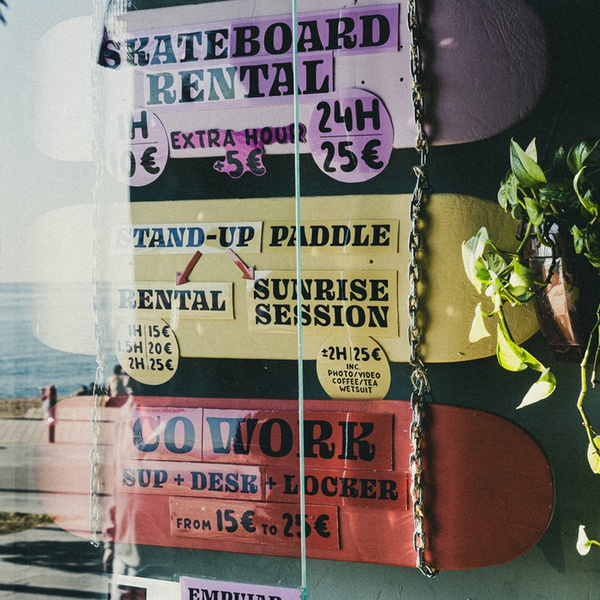 SKATEBOARD
RENTAL
1H
10€
EXTRA HOUR
-5€
24H
25€
STAND-UP PADDLE
RENTAL
1H 15€
1.5H 20€
2H 25€
SUNRISE
SESSION
±2H 25€
INC.
PHOTO/VIDEO
COFFEE/TEA
WETSUIT
COWORK
SUP + DESK + LOCKER
FROM 15€ TO 25€